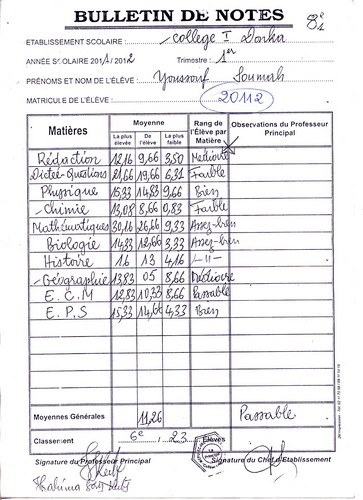 BULLETIN DE NOTES
8è 1
ETABLISSEMENT SCOLAIRE : College I Donka
ANNÉE SCOLAIRE 2011/2012 Trimestre : 1er
PRÉNOMS ET NOM DE L'ÉLÈVE : Youssouf Soumah
MATRICULE DE L'ÉLÈVE : 20112
Matières Moyenne Rang de l'Élève par Matière Observations du Professeur Principal
La plus élevée De l'élève La plus faible
Rédaction 12,16 9,66 3,50 Médiocre
Dictée-Questions 21,66 19,66 6,31 Faible
Physique 15,33 14,83 9,66 Bien
Chimie 13,08 8,66 0,83 Faible
Mathématiques 30,16 26,66 9,33 Assez-bien
Biologie 14,33 12,66 3,33 Assez-bien
Histoire 16 13 4,16 -//-
Géographie 13,83 05 8,66 Médiocre
E.C.M 12,83 10,33 8,66 Passable
E.P.S 15,33 14,66 4,33 Bien
Moyennes Générales 11,26 Passable
Classement 6e / 23 Élèves
Signature du Professeur Principal Signature du Chef d'Etablissement